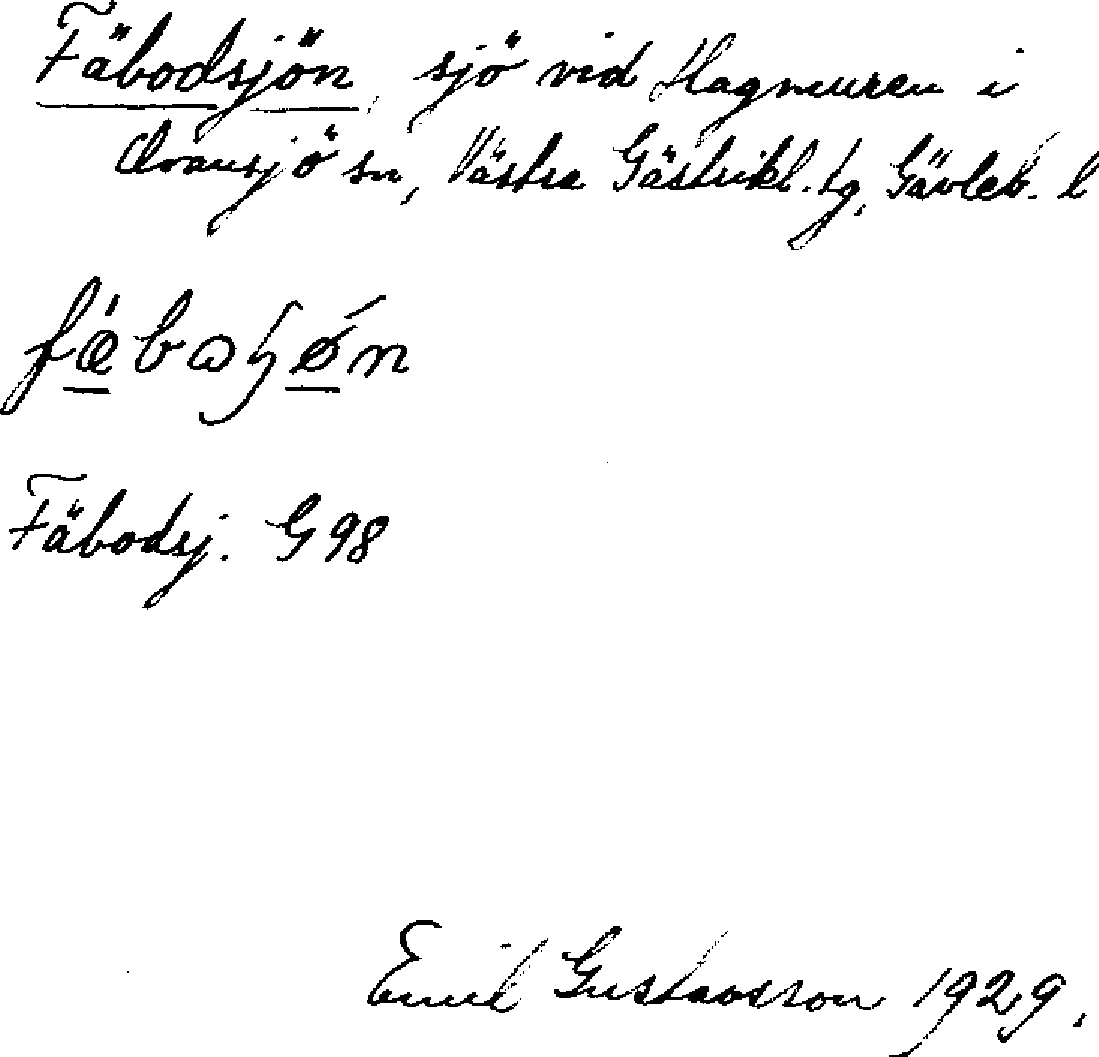 Fäbodsjön, sjö vid Hagmuren i
Ovansjö sn, Västra Gästrikl. tg, Gävleb. l
fǽ̲bωɧǿ̲n
Fäbodsj. G 98
Emil Gustavsson 1929.